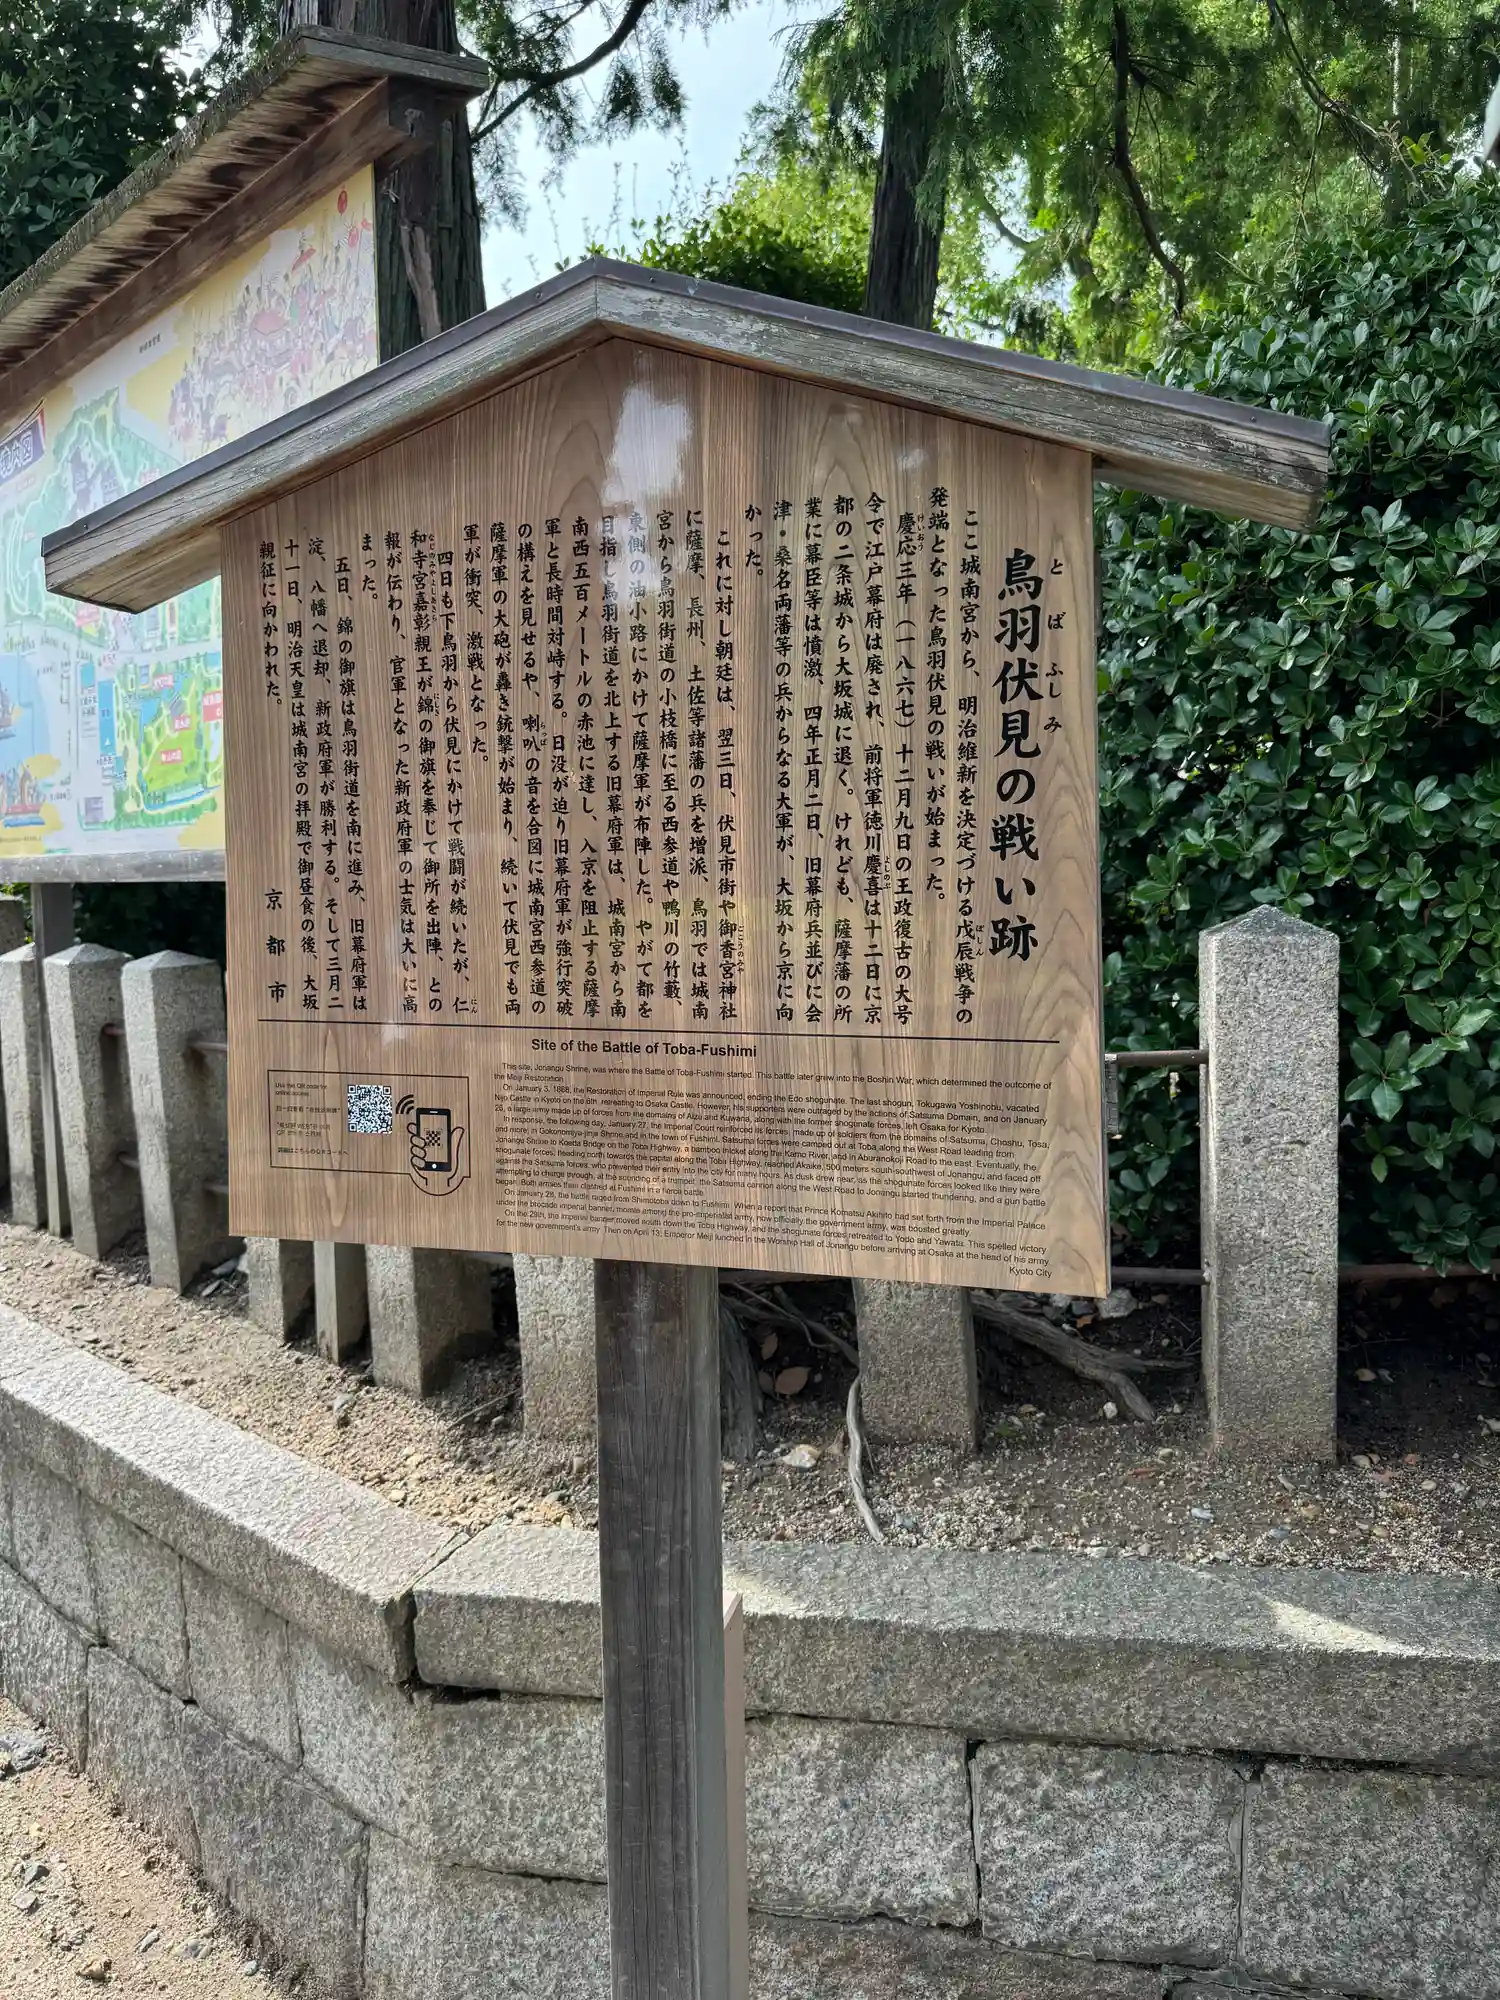 鳥羽伏見の戦い跡
とばふしみ
ここ城南宮から、明治維新を決定づける戊辰戦争の
ぼしん
発端となった鳥羽伏見の戦いが始まった。
慶応三年（一八六七）十二月九日の王政復古の大号
けいおう
令で江戸幕府は廃され、前将軍徳川慶喜は十二日に京
よしのぶ
都の二条城から大坂城に退く。けれども、薩摩藩の所
業に幕臣等は憤激、四年正月二日、旧幕府兵並びに会
津・桑名両藩等の兵からなる大軍が、大坂から京に向
かった。
これに対し朝廷は、翌三日、伏見市街や御香宮神社
ごこうのみや
に薩摩、長州、土佐等諸藩の兵を増派、鳥羽では城南
宮から鳥羽街道の小枝橋に至る西参道や鴨川の竹藪、
東側の油小路にかけて薩摩軍が布陣した。やがて都を
目指し鳥羽街道を北上する旧幕府軍は、城南宮から南
南西五百メートルの赤池に達し、入京を阻止する薩摩
軍と長時間対峙する。日没が迫り旧幕府軍が強行突破
の構えを見せるや、喇叭の音を合図に城南宮西参道の
らっぱ
薩摩軍の大砲が轟き銃撃が始まり、続いて伏見でも両
軍が衝突、激戦となった。
四日も下鳥羽から伏見にかけて戦闘が続いたが、仁
にん
和寺宮嘉彰親王が錦の御旗を奉じて御所を出陣、との
なじのみやよしあきら
にしき
報が伝わり、官軍となった新政府軍の士気は大いに高
まった。
五日、錦の御旗は鳥羽街道を南に進み、旧幕府軍は
淀、八幡へ退却、新政府軍が勝利する。そして三月二
十一日、明治天皇は城南宮の拝殿で御昼食の後、大坂
親征に向かわれた。
京都市
Site of the Battle of Toba-Fushimi
This site, Jonangu Shrine, was where the Battle of Toba-Fushimi started. This battle later grew into the Boshin War, which determined the outcome of
the Meiji Restoration.
On January 3, 1868, the Restoration of Imperial Rule was announced, ending the Edo shogunate. The last shogun, Tokugawa Yoshinobu, vacated
Nijo Castle in Kyoto on the 6th, retreating to Osaka Castle. However, his supporters were outraged by the actions of Satsuma Domain, and on January
26, a large army made up of forces from the domains of Aizu and Kuwana, along with the former shogunate forces, left Osaka for Kyoto.
In response, the following day, January 27, the Imperial Court reinforced its forces, made up of soldiers from the domains of Satsuma, Choshu, Tosa,
and more, in Gokonomiya-jinja Shrine and in the town of Fushimi. Satsuma forces were camped out at Toba along the West Road leading from
Jonangu Shrine to Koeda Bridge on the Toba Highway, a bamboo thicket along the Kamo River, and in Aburanokoji Road to the east. Eventually, the
shogunate forces, heading north towards the capital along the Toba Highway, reached Akaike, 500 meters south-southwest of Jonangu, and faced off
against the Satsuma forces, who prevented their entry into the city for many hours. As dusk drew near, as the shogunate forces looked like they were
attempting to charge through, at the sounding of a trumpet, the Satsuma cannon along the West Road to Jonangu started thundering, and a gun battle
began. Both armies then clashed at Fushimi in a fierce battle.
On January 28, the battle raged from Shimotoba down to Fushimi. When a report that Prince Komatsu Akihito had set forth from the Imperial Palace
under the brocade imperial banner, morale among the pro-imperialist army, now officially the government army, was boosted greatly.
On the 29th, the imperial banner moved south down the Toba Highway, and the shogunate forces retreated to Yodo and Yawata. This spelled victory
for the new government's army. Then on April 13, Emperor Meiji lunched in the Worship Hall of Jonangu before arriving at Osaka at the head of his army.
Kyoto City
Use this QR code for
境内図